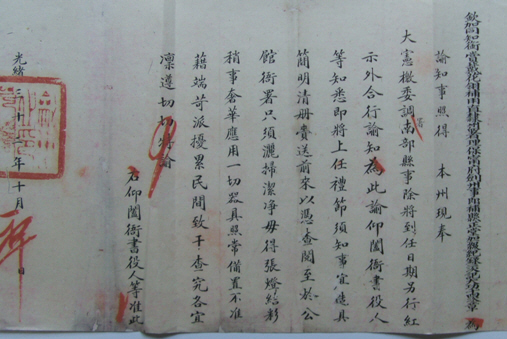 欽加同知銜賞戴花翎補用直隸州署理保寧府劍州事即補縣正堂加 為
諭知事照得 本州現奉
大憲檄委調署南部縣事除將到任日期另行紅
示外合行諭知為此諭仰閤衙書役人
等知悉即將上任禮節須知事宜造具
簡明清册賫送前來以憑查閱至於公
館衙署只須灑掃潔淨毋得張燈結彩
稍事奢華應用一切器具照常備置不准
藉端苛派擾累民間致干查究各宜
凜遵切切特諭
右仰閤衙書役人等准此
光緒 年十月 日